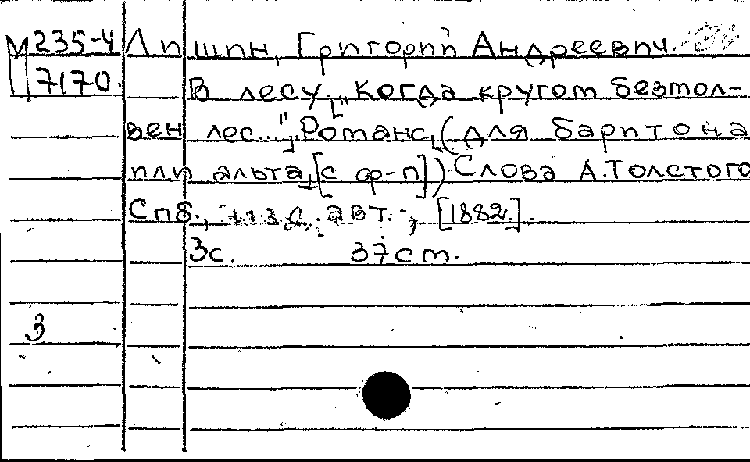 М 235-4 Лишин, Григорий Андреевич.
7170 В лесу. „Когда кругом безмол-
вен лес...". Романс. (для баритона
или альта [с ф-п]). Слова А. Толстого
Спб., изд. авт., [1882].
3с. 37 см.
3